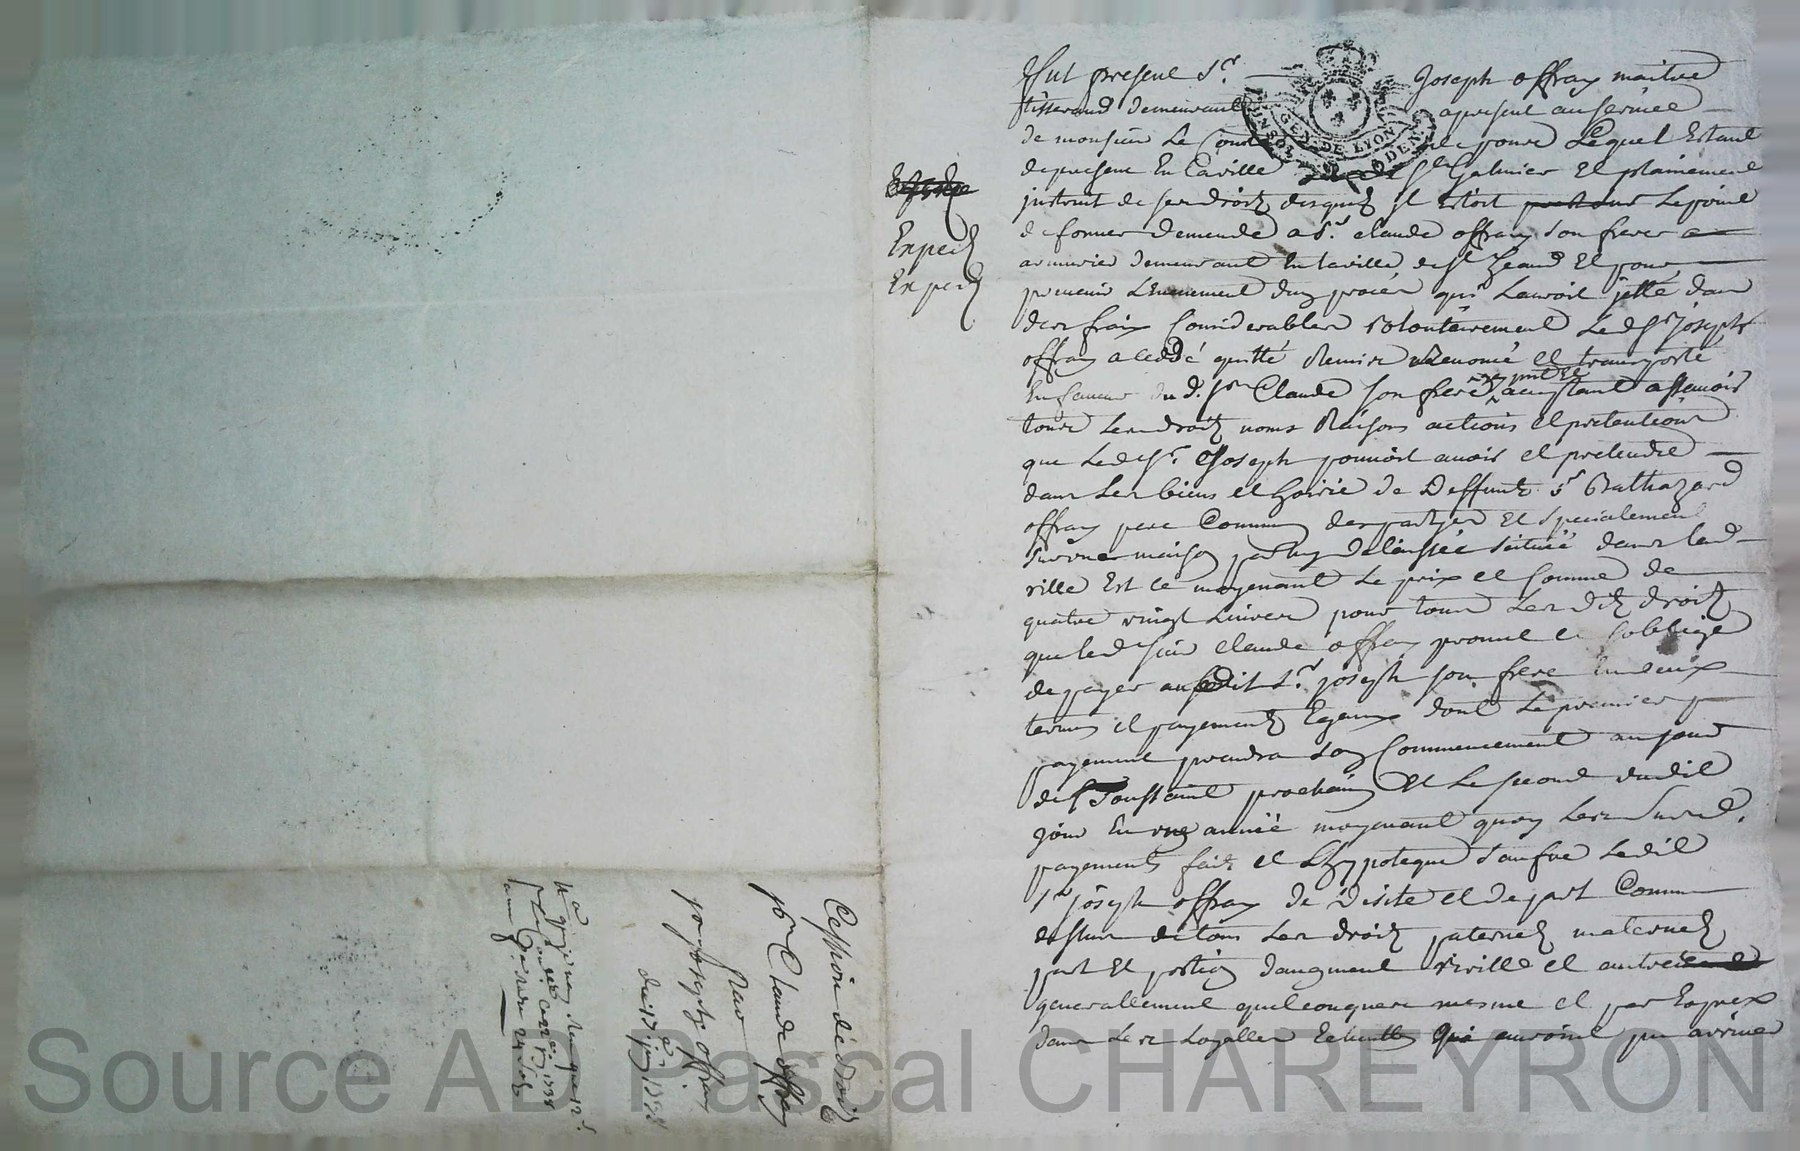 Expedié
Expedié
Fut present Sr. Joseph offray maitre
tisserand demeurant apresent au service
de monsieur Le Comte pour Lequel Estant
depresent En la ville St Galmier Et plainement
instruit de ses droits desquels il Estoit Le point
de former demande a Sr. claude offray son frere
armurier demeurant En la ville de St Jean Et pour
prevenir L'Evenement d'un procés qui Lauroit jetté dans
des frais Considerables volontairement Led Sr Joseph
offray a ceddé quitté Remis et transporté
En faveur du d. Sr Claude son frere acceptant assavoir
tous Les droits noms Raisons actions et pretentions
que Led Sr. Joseph pouvoit avoir et pretendre
dans Les biens et hoirie de Deffunt Sr Balthazard
offray pere Commun des partyes Et specialement
sur une maison par luy delaissée scituée dans lad
ville Est ce moyenant Le prix et somme de
quatre vingt Livres pour tous Les dits droits
que led Sieur claude offray promet et soblige
de payer audit Sr. joseph son frere En deux
termes et payements Egaux dont Le premier
payement prendra son Commencement au jour
de Toussaint prochain Et Le second dudit
jour En une année moyenant quoy Les susd.
payements faits et L'hypoteque sauf ledit
Sr joseph offray de Desite et depart Comme
dessus de tous Les droits paternels maternels
part Et portion daugment virille et autres
generallement quelconques mesme et par Expres
dans Les Loyalles Echuttes qui auroint pu arriver
Cession de droits
pr. Sr Claude offray
par
joseph offray
du 17 juin 1738
GEN. DE LYON
Source AD Pascal CHAREYRON